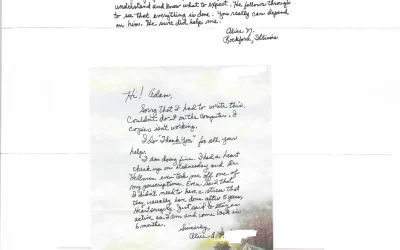 understand and know what to expect. He follows through
to see that everything is done. You really can depend
on him. He sure did help me.
Alice N.
Rockford, Illinois
Hi! Adam,
Sorry that I had to write this.
Couldn't do it on the computer. I
copiers isn't working.
I do "Thank You" for all your
help.
"I am doing fine. I had a heart
check up on Wednesday and Dr.
even took me off one of
my prescriptions. Even said that
I didn't need to have a stress that
they usually have done after 5 years.
Heart surgery. Just said to stay as
active as I am and come back in
6 months.
Sincerely,
Alice